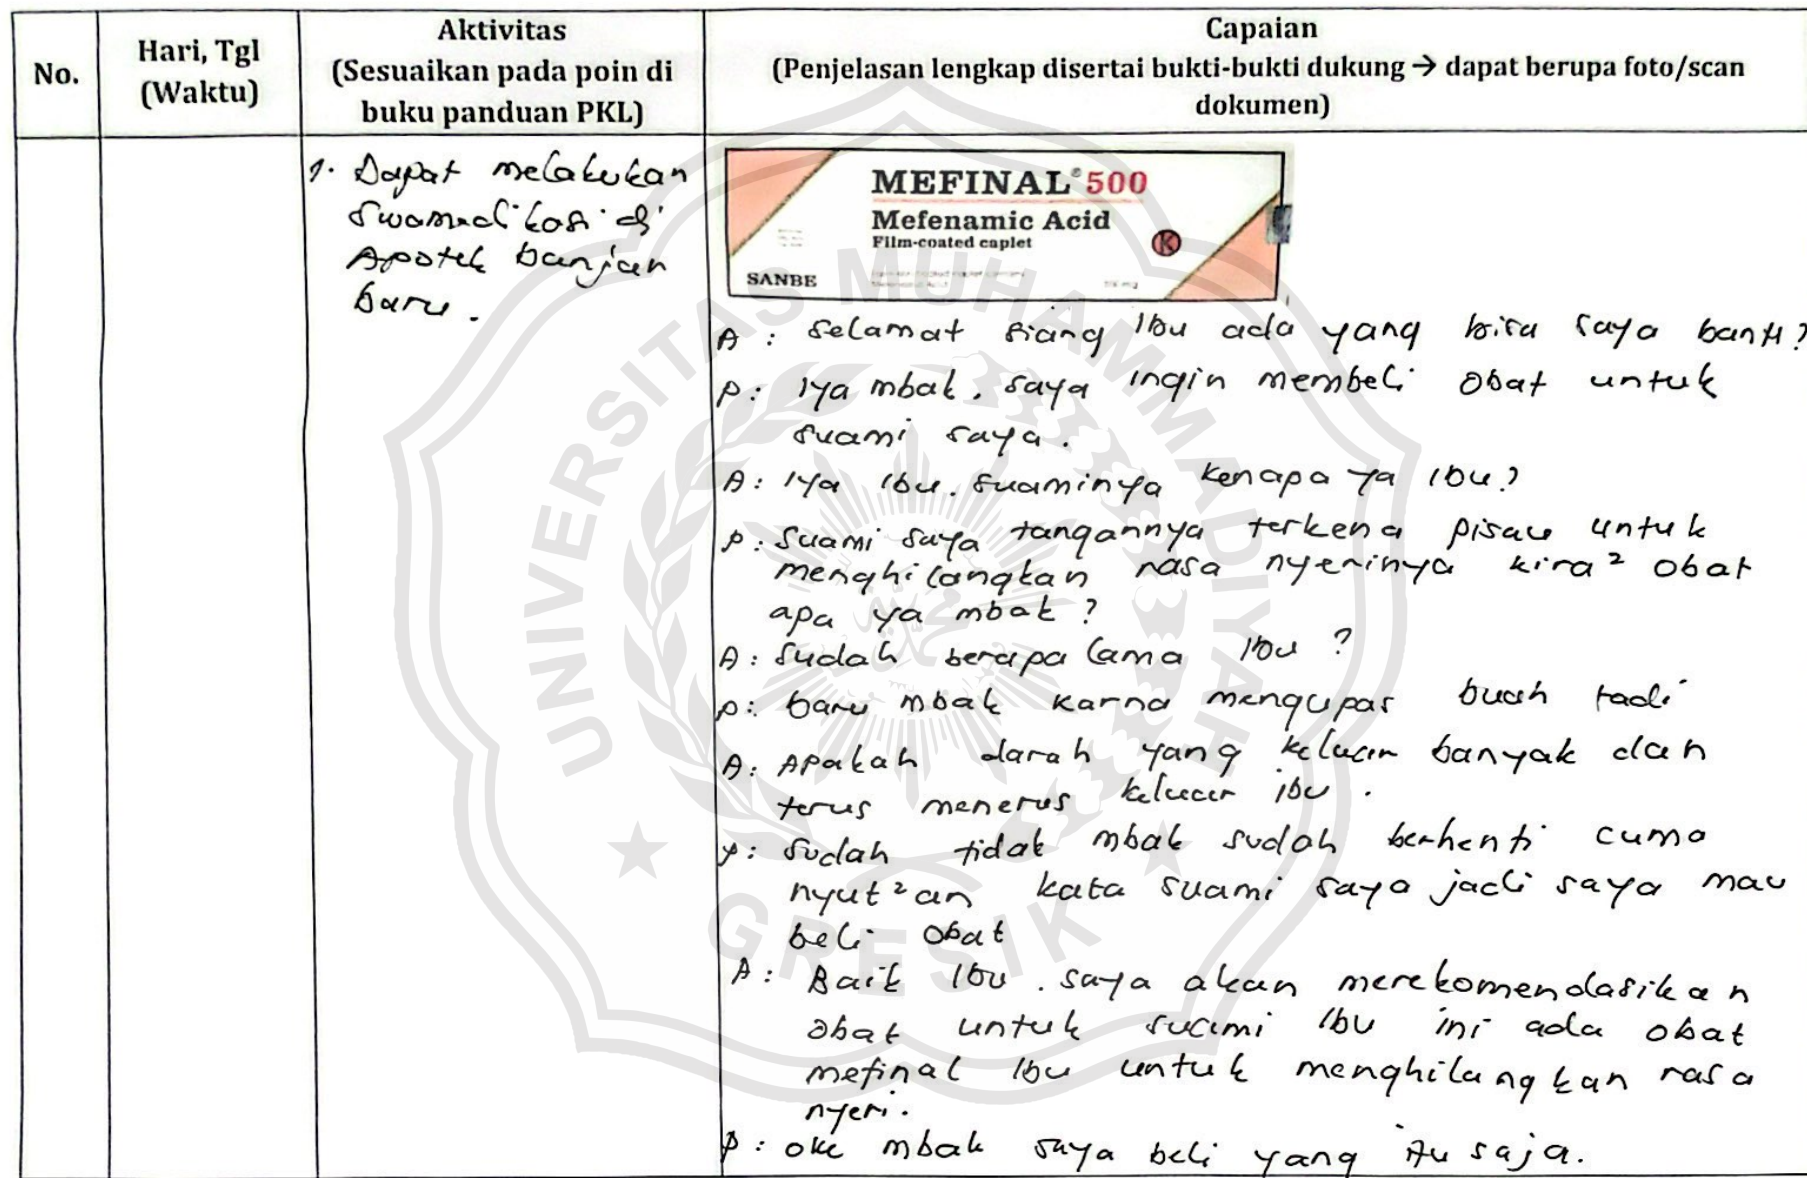 No.
Hari, Tgl
(Waktu)
Aktivitas
(Sesuaikan pada poin di
buku panduan PKL)
Capaian
(Penjelasan lengkap disertai bukti-bukti dukung → dapat berupa foto/scan
dokumen)
1. Dapat melakukan
swamedikasi di
Apotek banjar
baru.
MEFINAL® 500
Mefenamic Acid
Film-coated caplet
K
SANBE
A : Selamat siang Ibu ada yang bisa saya bantu?
P : Iya mbak. saya ingin membeli obat untuk
suami saya.
A : Iya Ibu. suaminya kenapa ya Ibu?
P : Suami saya tangannya terkena pisau untuk
menghilangkan rasa nyerinya kira² obat
apa ya mbak?
A : Sudah berapa lama Ibu?
P : baru mbak karna mengupas buah tadi
A : Apakah darah yang keluar banyak dan
terus menerus keluar ibu.
P : Sudah tidak mbak sudah berhenti cuma
nyut²an kata suami saya jadi saya mau
beli obat
A : Baik Ibu. saya akan merekomendasikan
obat untuk suami Ibu ini ada obat
mefinal Ibu untuk menghilangkan rasa
nyeri.
P : oke mbak saya beli yang itu saja.
UNIVERSITAS MUHAMMADIYAH
GRESIK